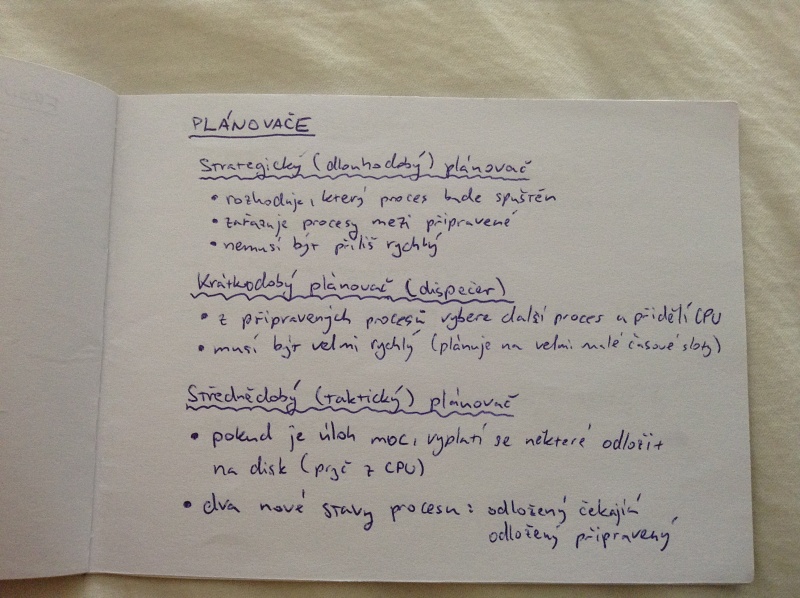 PLÁNOVAČE
Strategický (dlouhodobý) plánovač
• rozhoduje, který proces bude spuštěn
• zařazuje procesy mezi připravené
• nemusí být příliš rychlý
Krátkodobý plánovač (dispečer)
• z připravených procesů vybere další proces a přidělí CPU
• musí být velmi rychlý (plánuje na velmi malé časové sloty)
Střednědobý (taktický) plánovač
• pokud je úloh moc, vyplatí se některé odložit
na disk (pryč z CPU)
• dva nové stavy procesu: odložený čekající
odložený připravený